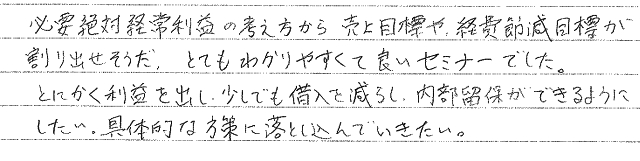 必要絶対経常利益の考え方から 売上目標や、経費節減目標が
割り出せそうだ、とてもわかりやすくて良いセミナーでした。
とにかく利益を出し、少しでも借入を減らし、内部留保ができるように
したい。具体的な方策に落とし込んでいきたい。